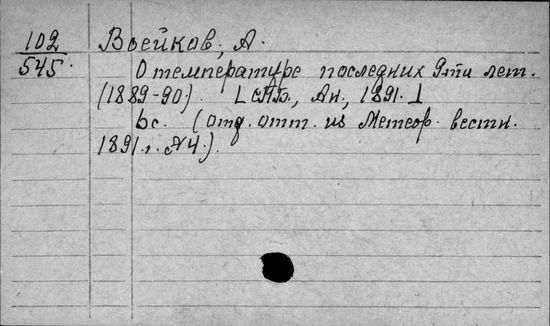 102 Воейков, А.
545. О температуре последних 9ти лет.
(1889-90). [СПБ., Ан., 1891.]
6с. (Отд. отт. из Метеор. вестн.
1891 г. №4.).